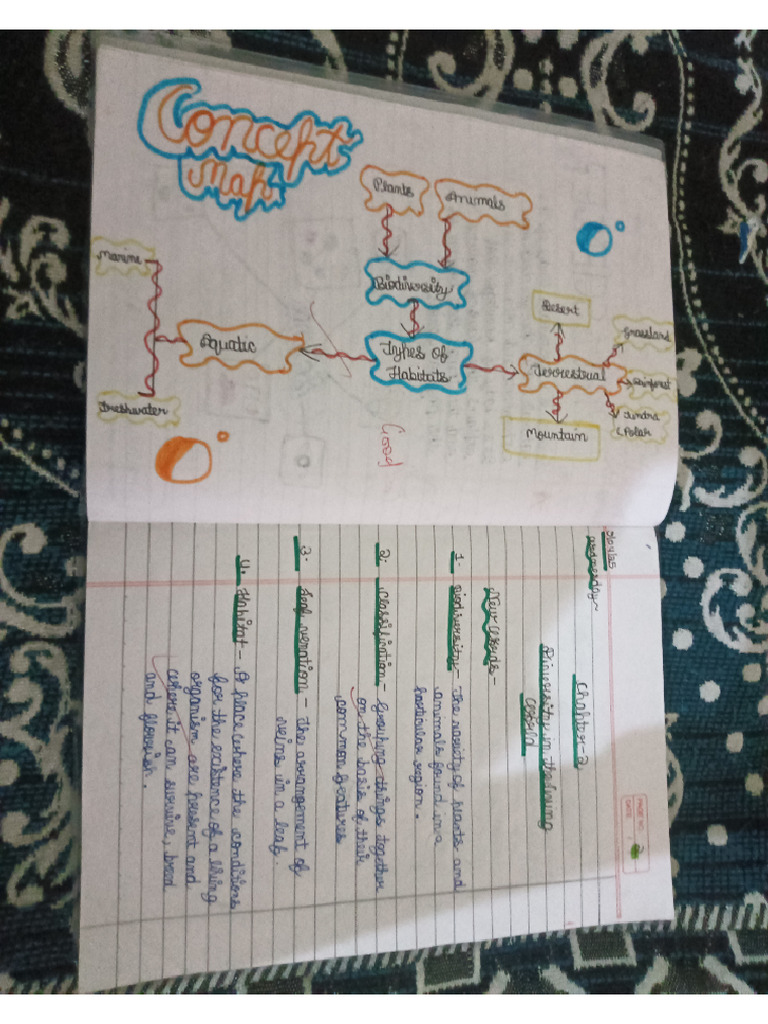 Concept
Map
Plants
Animals
Biodiversity
Types of
Habitats
Aquatic
Marine
Freshwater
Terrestrial
Desert
Mountain
Grassland
Rainforest
Tundra
(Polar
Good
PAGE NO.
DATE
wednesday
Chapter-2
Diversity in the living
world
New words -
1. Biodiversity - The variety of plants and
animals found in a
particular region.
2. classification - Grouping things together
on the basis of their
common features
3. Leaf venation - The arrangement of
veins in a leaf.
4. Habitat - A place where the conditions
for the existence of a living
organism are present and
where it can survive, breed
and flourish.